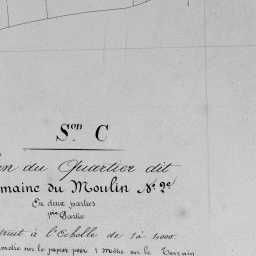 Son C
du Quartier dit
maine du Moulin No 2e
En deux parties
1ère Partie
à l'Echelle de 1 à 4000
sur le papier pour 1 Mètre sur le Terrain